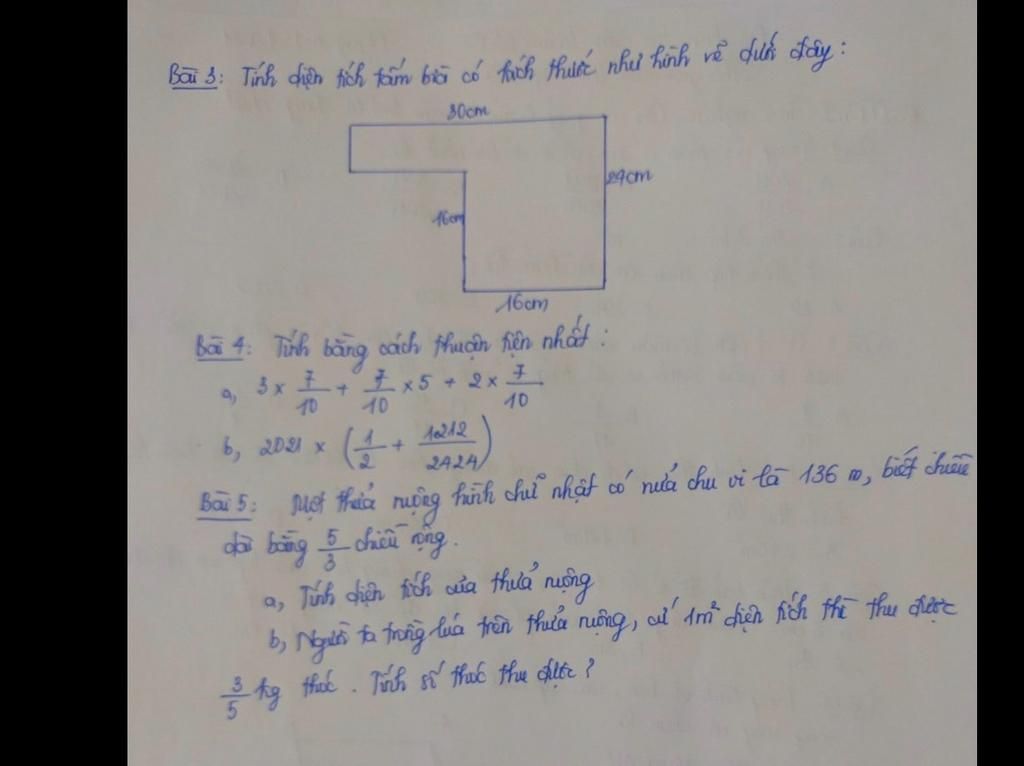 Bài 3: Tính diện tích tấm bìa có kích thước như hình vẽ dưới đây:
30cm
24cm
16cm
16cm
Bài 4: Tính bằng cách thuận tiện nhất:
a, 3 × 7/10 + 7/10 × 5 + 2 × 7/10
b, 2021 × (1/2 + 1212/2424)
Bài 5: Một thửa ruộng hình chữ nhật có nửa chu vi là 136 m, biết chiều
dài bằng 5/3 chiều rộng.
a, Tính diện tích của thửa ruộng
b, Người ta trồng lúa trên thửa ruộng, cứ 1m² diện tích thì thu được
3/5 kg thóc. Tính số thóc thu được?